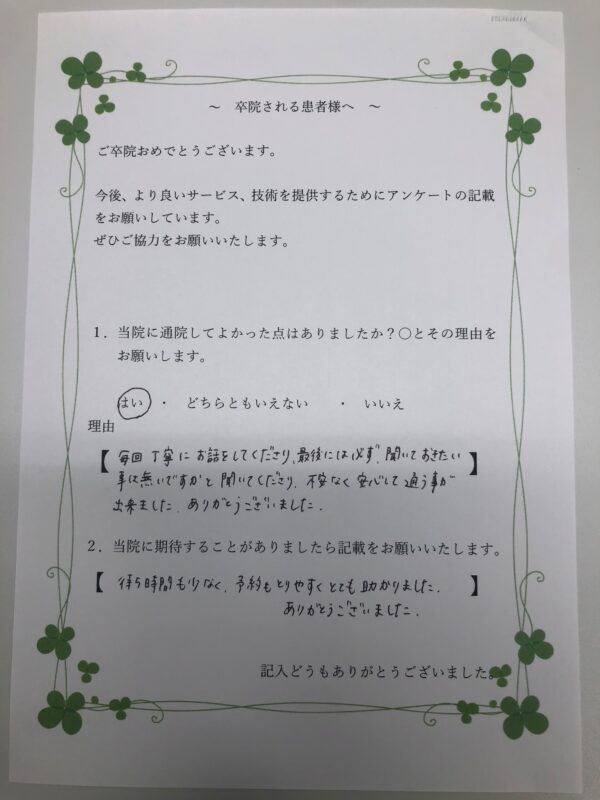 ～ 卒院される患者様へ ～
ご卒院おめでとうございます。
今後、より良いサービス、技術を提供するためにアンケートの記載
をお願いしています。
ぜひご協力をお願いいたします。
１．当院に通院してよかった点はありましたか？〇とその理由を
お願いします。
はい ・ どちらともいえない ・ いいえ
理由
【 毎回丁寧にお話をしてくださり、最後には必ず、聞いておきたい 】
事は無いですかと聞いてくださり、不安なく安心して通う事が
出来ました。ありがとうございました。
２．当院に期待することがありましたら記載をお願いいたします。
【 待ち時間も少なく、予約もとりやすくとても助かりました。 】
ありがとうございました。
記入どうもありがとうございました。